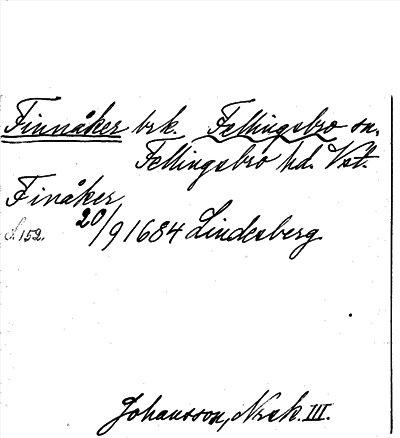 Finnåker brk. Fellingsbro sn.
Fellingsbro hd. Vst.
Finåker
S. 152. 20/9 1684 Lindesberg
Johansson, Nrsk. III.